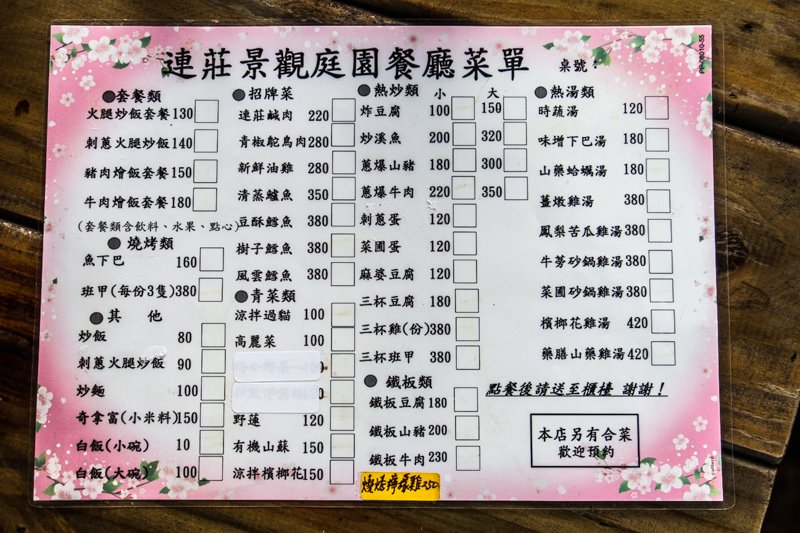 連莊景觀庭園餐廳菜單
桌號：
PP-06010-55
●套餐類
火腿炒飯套餐130
刺蔥火腿炒飯140
豬肉燴飯套餐150
牛肉燴飯套餐180
(套餐類含飲料、水果、點心)
●燒烤類
魚下巴 160
班甲(每份3隻)380
●其 他
炒飯 80
刺蔥火腿炒飯 90
炒麵 100
奇拿富(小米料)150
白飯(小碗) 10
白飯(大碗) 100
●招牌菜
連莊鹹肉 220
青椒鴕鳥肉280
新鮮油雞 280
清蒸鱸魚 350
豆酥鱈魚 380
樹子鱈魚 380
風雲鱈魚 380
●青菜類
涼拌過貓 100
高麗菜 100
野蓮 120
有機山蘇 150
涼拌檳榔花150
●熱炒類 小 大
炸豆腐 100 150
炒溪魚 200 320
蔥爆山豬 180 300
蔥爆牛肉 220 350
刺蔥蛋 120
菜圃蛋 120
麻婆豆腐 120
三杯豆腐 180
三杯雞(份)380
三杯班甲 380
●鐵板類
鐵板豆腐180
鐵板山豬200
鐵板牛肉230
●熱湯類
時蔬湯 120
味增下巴湯 180
山藥蛤蠣湯 180
薑燉雞湯 380
鳳梨苦瓜雞湯380
牛蒡砂鍋雞湯380
菜圃砂鍋雞湯380
檳榔花雞湯 420
藥膳山藥雞湯420
點餐後請送至櫃檯 謝謝！
本店另有合菜
歡迎預約